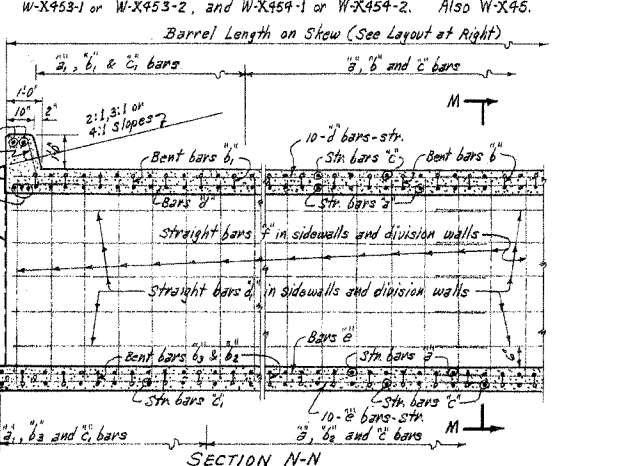 W-X453-1 or W-X453-2, and W-X454-1 or W-X454-2. Also W-X45.
Barrel Length on Skew (See Layout at Right)
"a₁", "b₁" & "c₁" bars
"a", "b" and "c" bars
1'-0"
10" 2"
2:1, 3:1 or
4:1 Slopes
M
10-"d" bars-str.
Bent bars "b₁"
Str. bars "c"
Bent bars "b"
Bars "d"
Str. bars "a"
Straight bars "f" in sidewalls and division walls
Straight bars "d" in sidewalls and division walls
Bars "e"
Bent bars "b₃" & "b₂"
Str. bars "a"
Str. bars "c₁"
Str. bars "c"
10-"e" bars-str.
M
"a₁", "b₃" and "c₁" bars
"a", "b₂" and "c" bars
SECTION N-N